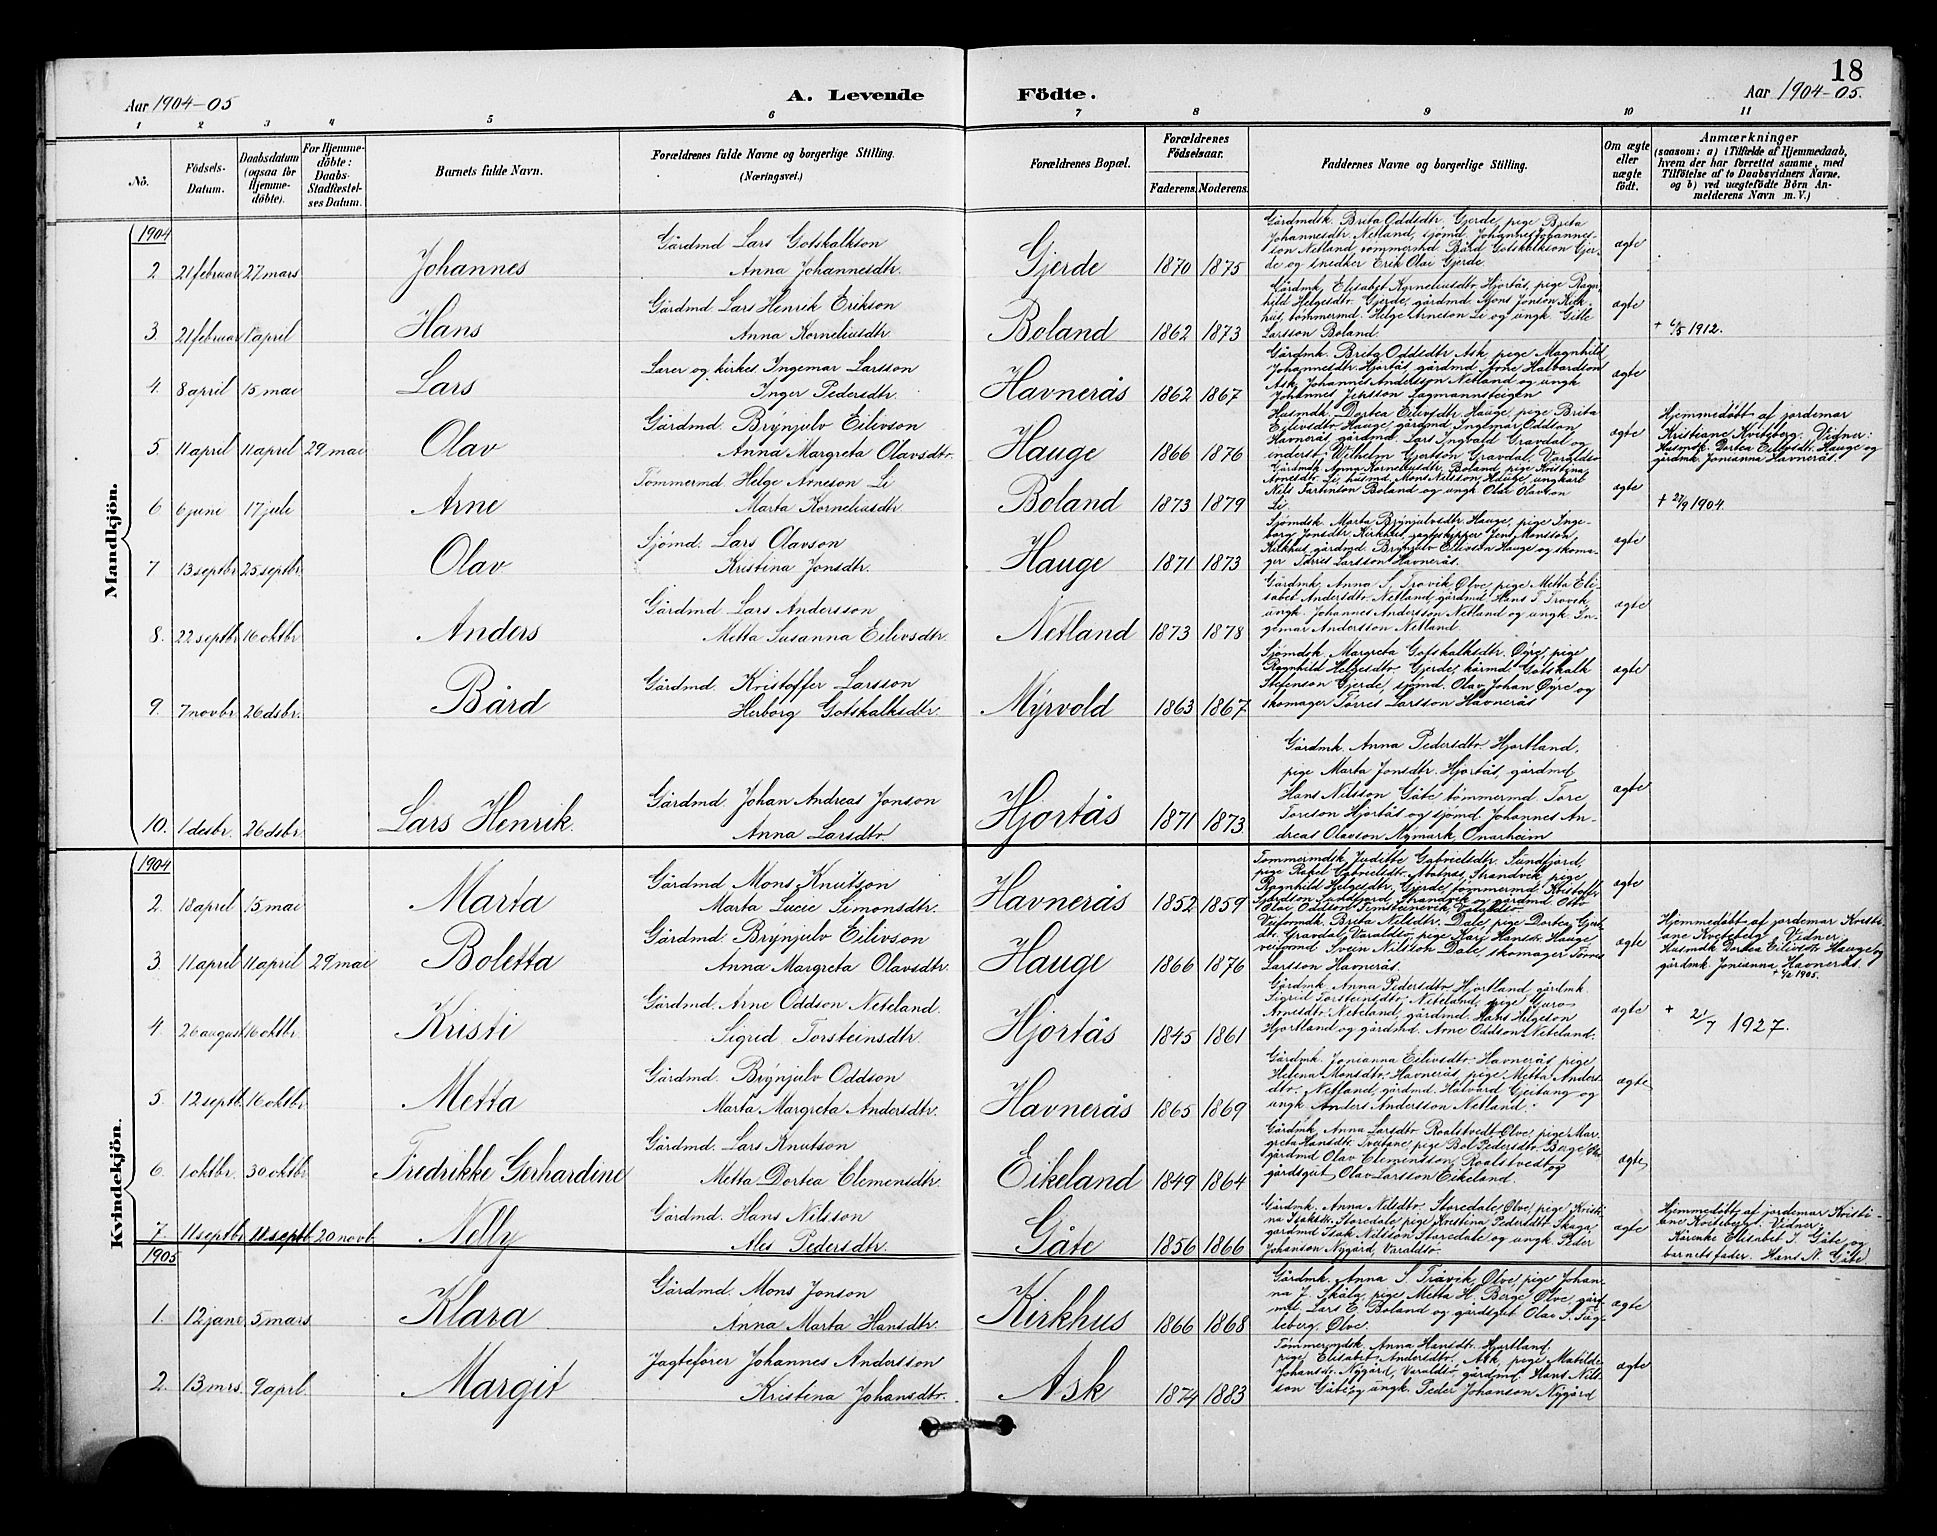 18
Aar 1904-05 A. Levende Födte. Aar 1904-05.
1 2 3 4 5 6 7 8 9 10 11
No.
Födsels-Datum.
Daabsdatum (ogsaa for Hjemme-döbte).
For Hjemme-döbte: Daabs-Stadfæstel-ses Datum.
Barnets fulde Navn.
Forældrenes fulde Navne og borgerlige Stilling.
(Næringsvei.)
Forældrenes Bopæl.
Forældrenes Födselsaar.
Faderens. Moderens.
Faddernes Navne og borgerlige Stilling.
Om ægte eller uægte födt.
Anmærkninger
(saasom: a) i Tilfælde af Hjemmedaab, hvem der har forrettet samme, med Tilföielse af to Daabsvidners Navne. og b) ved uægtefödte Börn An-melderens Navn m. V.)
Mandkjön.
1904
2 21 februar 27 mars Johannes Gårdmd Lars Gotskalkson
Anna Johannesdtr. Gjerde 1870 1875
Gårdmdsk. Brita Oddsdtr. Gjerde, pige Brita
Johannesdtr. Netland, sjømd Johannes Johannes-
son Netland, tømmermd. Bård Gotskalkson Gjer-
de og snedker Erik Olai Gjerde
ægte
3. 21 februar 1 april Hans Gårdmd Lars Henrik Erikson
Anna Korneliusdtr Boland 1862 1873
Gårdmk. Elisabet Korneliusdtr Hjortås, pige Ragn-
hild Helgesdtr. Gjerde, gårdmd Mons Jonson Kirk-
hus, tømmermd. Helge Arneson Li og ungk. Gitle
Larsson Boland
ægte
+ 6/5 1912.
4. 8 april 15 mai Lars Lærer og kirkes. Ingemar Larsson
Inger Pedersdtr. Havnerås 1862 1867
Gårdmk. Brita Oddsdtr Ask, pige Magnhild
Johannesdtr. Hjortås, gårdmd Arne Halvardson
Ask, Johannes Andersson Netland og ungk
Johannes Jensson Lagmannsteigen
ægte
5 11 april 11 april 29 mai Olav Gårdmd Brynjulv Eilivson
Anna Margreta Olavsdtr. Hauge 1866 1876
Husmdk. Dortea Eilivsdtr. Hauge, pige Brita
Eilivsdtr Hauge, gårdmd Ingemar Oddson
Havnerås, gårdmd Lars Ingvald Gravdal og
inderst Vilhelm Gjertson Gravdal, Varaldsö
ægte
Hjemmedøbt af jordemor
Kristiane Kviteberg. Vidner:
Husmdk. Dortea Eilivsdtr. Hauge og
gårdmk. Jonianna Havnerås.
6 6 juni 17 juli Arne Tømmermd Helge Arneson Li
Marta Korneliusdtr. Boland 1873 1879
Gårdmdk Anna Korneliusdtr. Boland, pige Kristina
Arnesdtr. Li, husmd Mons Nilsson Hauge, ungkarl
Nils Boland og ungk Olav Olavson
Li.
ægte
+ 27/9 1904.
7 13 septbr 25 septbr Olav Sjømd. Lars Olavson
Kristina Jonsdtr. Hauge 1871 1873
Sjømdsk. Marta Brynjulvsdtr. Hauge, pige Inge-
borg Jonsdtr. Kirkhus, jagteskipper Jens Monsson,
Kirkhus, gårdmd. Brynjulv Eilivson Hauge og skoma-
ger Tørres Larsson Havnerås.
ægte
8. 22 septbr 16 oktbr Anders Gårdmd Lars Andersson
Metta Susanna Eilivsdtr. Netland 1873 1878
Gårdmk. Anna S. Travik, Ølve, pige Metta Eli-
sabet Andersdtr. Netland, gårdmd Hans J. Travik
ungk. Johannes Andersson Netland og ungk. In-
gemar Andersson Netland.
ægte
9. 7 novbr 26 dsbr. Bård Gårdmd. Kristoffer Larsson
Herborg Gotskalksdtr. Myrvold 1863 1867
Sjømdsk. Margreta Gotskalksdtr. Øyre, pige
Ragnhild Helgesdtr Gjerde, kårmd Gotskalk
Stefenson Gjerde, sjømd. Olav Johan Øyre og
skomager Tørres Larsson Havnerås
ægte
10. 1 desbr. 26 dsbr. Lars Henrik. Gårdmd. Johan Andreas Jonson
Anna Larsdtr. Hjortås 1871 1873
Gårdmk. Anna Pedersdtr. Hjortland,
pige Marta Jonsdtr. Hjortås, gårdmd
Hans Nilsson Gåte, tømmermd. Tore
Toreson Hjortås og sjømd. Johannes An-
dreas Olavson Nymark, Onarheim
ægte
Kvindekjön.
1904
2. 18 april 15 mai Marta Gårdmd Mons Knutson
Marta Lucie Simonsdtr. Havnerås 1852 1859
Tømmermdsk. Juditte Gabrielsdtr. Sundfjord,
pige Rakel Gabrielsdtr. Strandvik, pige
Ragnhild Helgesdtr, Gjerde, tømmermd Kristoffer
Sundfjord, Strandvik og gårdmd Otto
Olai Oddson Varaldsö
ægte
3 11 april 11 april 29 mai Boletta Gårdmd Brynjulv Eilivson
Anna Margreta Olavsdtr. Hauge 1866 1876
Brita Nilsdtr. Dale, pige Dortea Gjert-
dtr. Gravdal, Varaldsö, pige Kari Hansdtr. Hauge
Svein Nilsson Dale, skomager Tørres
Larsson Havnerås.
ægte
Hjemmedøbt af jordemor Kristi-
ane Kviteberg. Vidner
Husmdk Dortea Eilivsdtr. Hauge og
gårdmk. Jonianna Havnerås.
+ 1/2 1905.
4. 26 august 16 oktbr. Kristi Gårdmd Arne Oddson Neteland.
Sigrid Torsteinsdtr. Hjortås 1845 1861
Gårdmk. Anna Pedersdtr Hjortland, gårdmk.
Sigrid Torsteinsdtr. Neteland, pige Guro
Arnesdtr. Neteland, gårdmd. Hans Helgeson
Hjortland og gårdmd. Arne Oddson Neteland.
ægte
+ 21/7 1927.
5. 12 septb. 16 oktbr. Metta Gårdmd. Brynjulv Oddson
Marta Margreta Andersdtr. Havnerås 1865 1869
Gårdmk. Jonianna Eilivsdtr. Havnerås, pige
Helena Monsdtr. Havnerås, pige Metta Anders-
dtr. Netland, gårdmd. Halvard Gjeitang og
ungk Anders Andersson Netland.
ægte
6. 1 oktbr. 30 oktbr. Fredrikke Gerhardine Gårdmd. Lars Knutson
Metta Dortea Clemensdtr. Eikeland 1849 1864
Gårdmk. Anna Larsdtr. Roaldstvedt, Ølve, pige Mar-
greta Hansdtr. Tveitane, pige Bol Pedersdtr. Berge, Ølve
gårdmd Olav Clemensson Roaldstvedt og
gårdsgut Olav Larsson Eikeland.
ægte
7. 11 septbr 11 septb. 20 novb. Nelly Gårdmd. Hans Nilsson
Ales Pedersdtr. Gåte 1856 1866
Gårdmk. Anna Nilsdtr. Storedale, Ølve, pige Kristi-
na Isaksdtr. Storedale, pige Kristina Pedersdtr Skaga,
gårdmd Isak Nilsson Storedale og ungk Peder
Johanson Nygård Varaldsö.
ægte
Hjemmedøbt af jordemor Kristi-
ane Kviteberg. Vidner:
Kårenke Elisabet I. Gåte og
barnets fader. Hans N. Gåte)
1905
1. 12 jane 5 mars Klara Gårdmd. Mons Jonson
Anna Marta Hansdtr. Kirkhus 1866 1868
Gårdmk. Anna S. Travik, Ølve, pige Johan-
na J. Skåla, pige Metta H. Berge, Ølve, gård-
md. Lars E. Boland og gårdsgut Olav S. Fug-
leberg, Ølve.
ægte
2. 13 mrs. 9 aprl. Margit Jagtefører Johannes Andersson
Kristina Johansdtr. Ask 1874 1883
Tømmermdk. Anna Hansdtr. Hjortland,
pige Elisabet Andersdtr. Ask, pige Matilde
Johansdtr. Nygård, Varaldsö, gårdmd. Hans Nils-
son Gåte og ungk. Peder Johanson Nygård
ægte